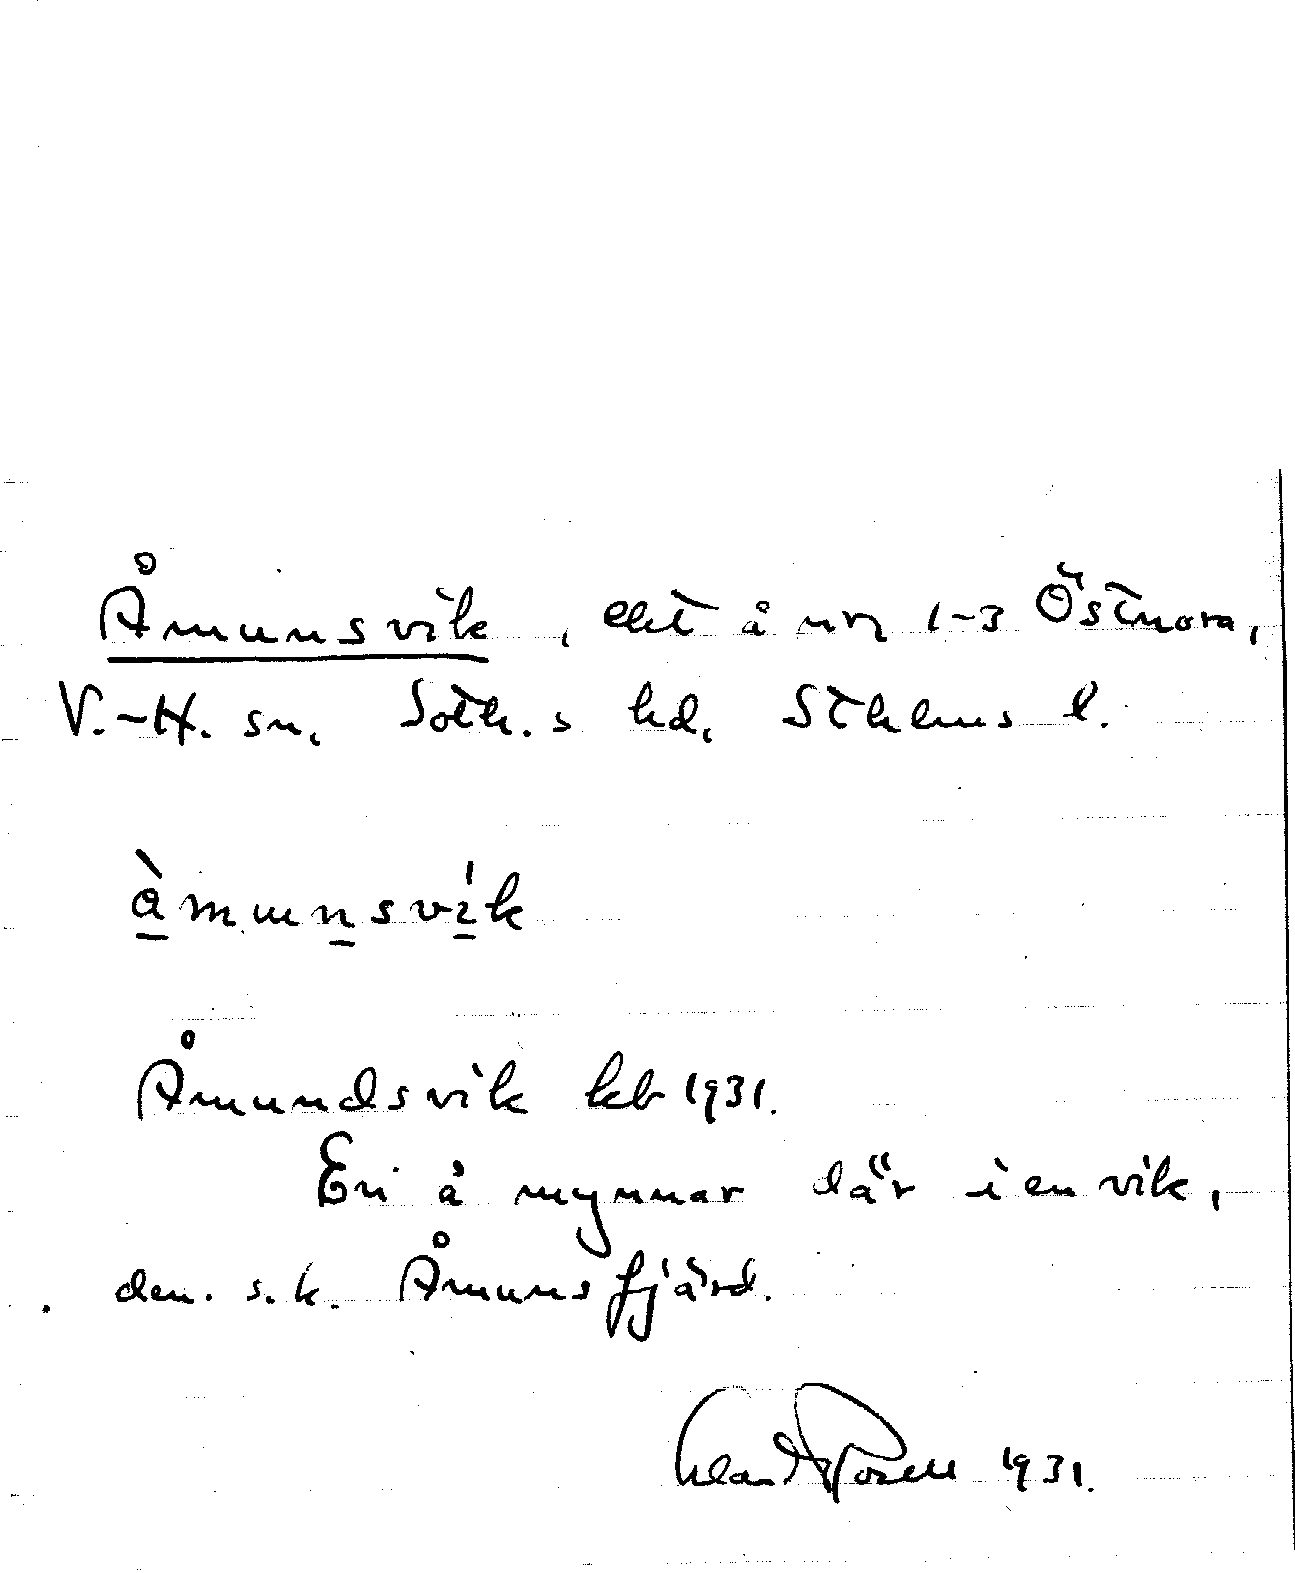 Åmunsvik, elht å nrr 1-3 Östnora,
V.-H. sn. Soth.s hd. Sthlms l.
àmunsvík
Åmundsvik kb 1931.
En å mynnar där i en vik,
den s.k. Åmunsfjärd.
1931.